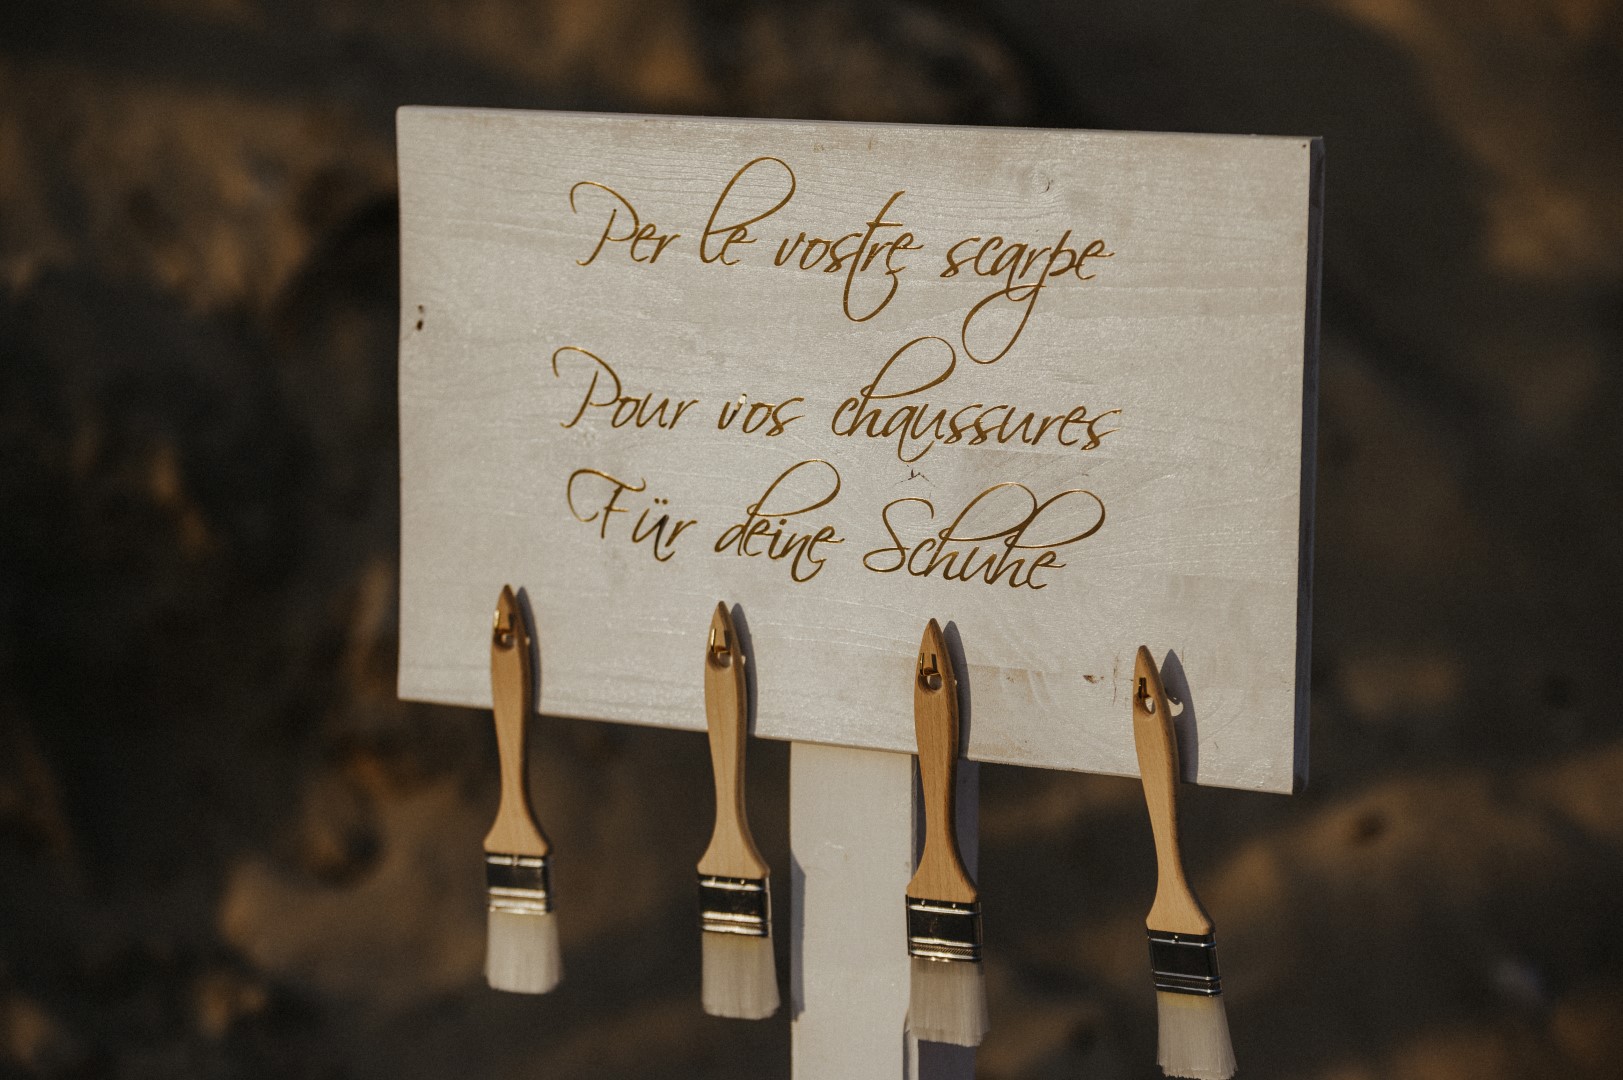 Per le vostre scarpe
Pour vos chaussures
Für deine Schuhe